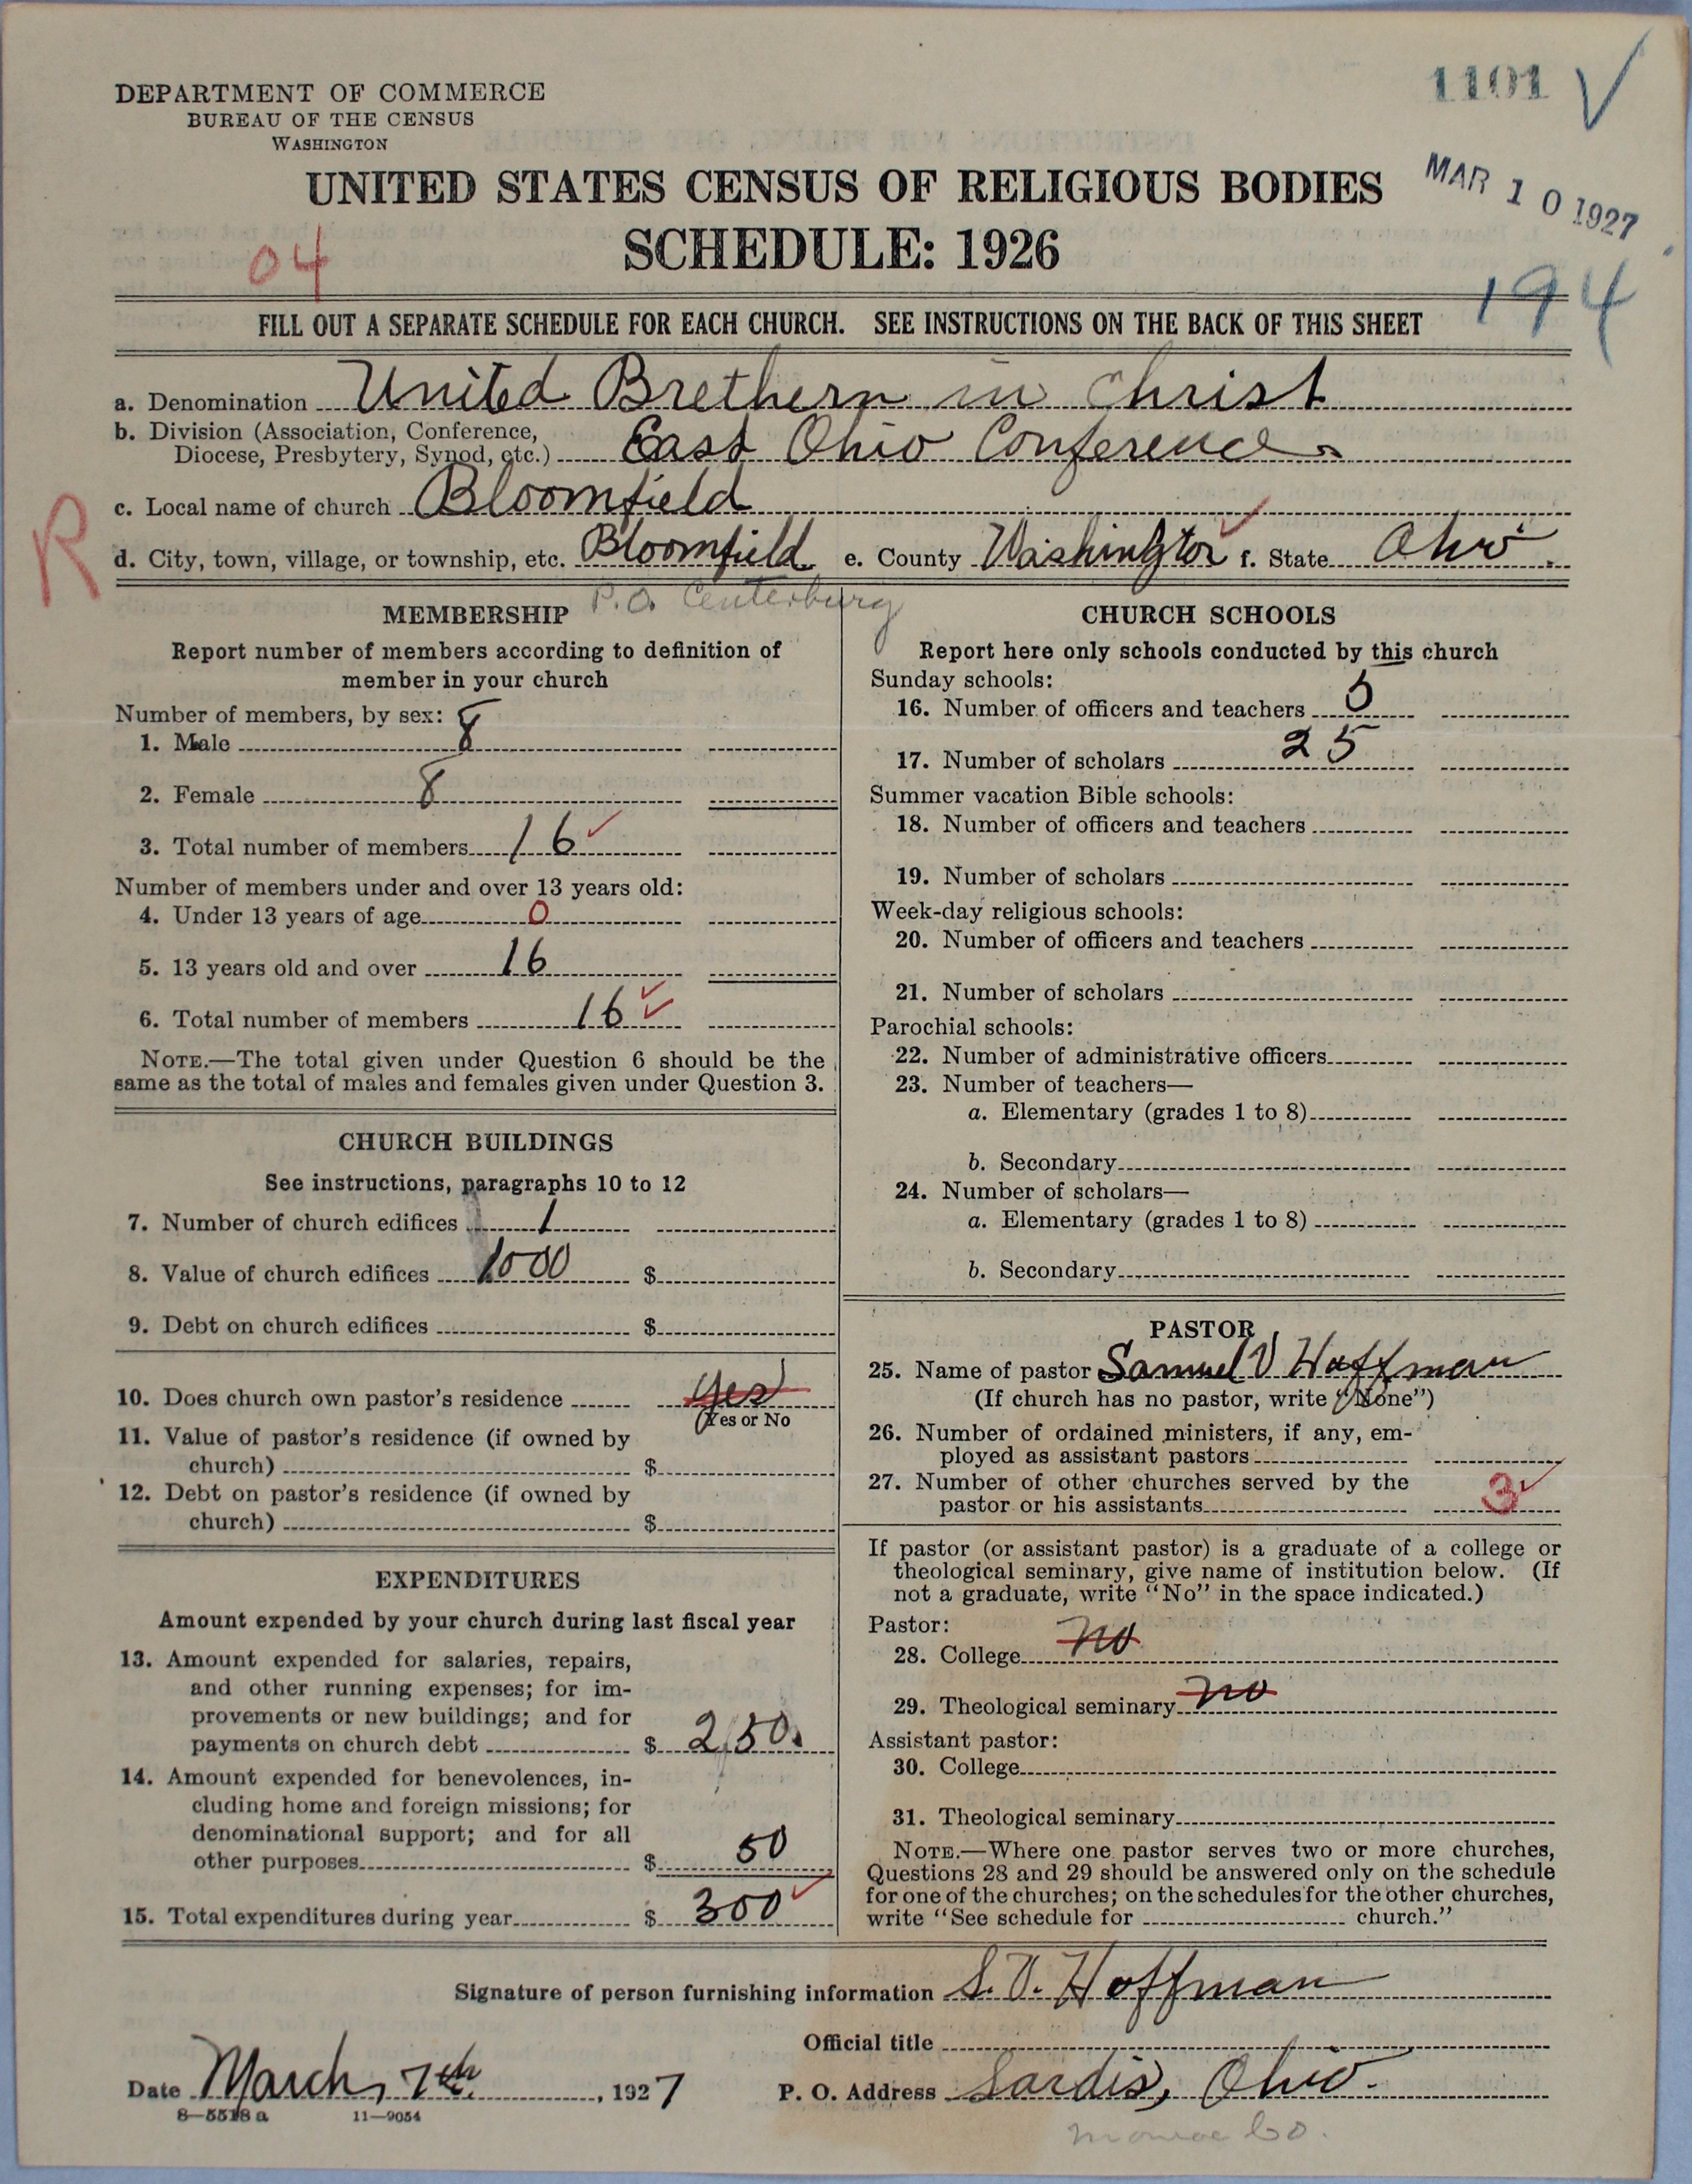 1101 V
DEPARTMENT OF COMMERCE
BUREAU OF THE CENSUS
WASHINGTON
UNITED STATES CENSUS OF RELIGIOUS BODIES
MAR 10 1927
SCHEDULE: 1926
04
194
FILL OUT A SEPARATE SCHEDULE FOR EACH CHURCH. SEE INSTRUCTIONS ON THE BACK OF THIS SHEET
a. Denomination United Brethern in Christ
b. Division (Association, Conference,
Diocese, Presbytery, Synod, etc.) East Ohio Conference
R
c. Local name of church Bloomfield
d. City, town, village, or township, etc. Bloomfield e. County Washington f. State Ohio
P.O. Centerburg
MEMBERSHIP
Report number of members according to definition of
member in your church
Number of members, by sex:
1. Male 8
2. Female 8
3. Total number of members 16
Number of members under and over 13 years old:
4. Under 13 years of age 0
5. 13 years old and over 16
6. Total number of members 16
NOTE.—The total given under Question 6 should be the
same as the total of males and females given under Question 3.
CHURCH BUILDINGS
See instructions, paragraphs 10 to 12
7. Number of church edifices 1
8. Value of church edifices 1000 $
9. Debt on church edifices $
10. Does church own pastor's residence Yes
(Yes or No
11. Value of pastor's residence (if owned by
church) $
12. Debt on pastor's residence (if owned by
church) $
EXPENDITURES
Amount expended by your church during last fiscal year
13. Amount expended for salaries, repairs,
and other running expenses; for im-
provements or new buildings; and for
payments on church debt $ 250.
14. Amount expended for benevolences, in-
cluding home and foreign missions; for
denominational support; and for all
other purposes $ 50
15. Total expenditures during year $ 300
CHURCH SCHOOLS
Report here only schools conducted by this church
Sunday schools:
16. Number of officers and teachers 5
17. Number of scholars 25
Summer vacation Bible schools:
18. Number of officers and teachers
19. Number of scholars
Week-day religious schools:
20. Number of officers and teachers
21. Number of scholars
Parochial schools:
22. Number of administrative officers
23. Number of teachers—
a. Elementary (grades 1 to 8)
b. Secondary
24. Number of scholars—
a. Elementary (grades 1 to 8)
b. Secondary
PASTOR
25. Name of pastor Samuel V Hoffman
(If church has no pastor, write "None")
26. Number of ordained ministers, if any, em-
ployed as assistant pastors
27. Number of other churches served by the
pastor or his assistants 3
If pastor (or assistant pastor) is a graduate of a college or
theological seminary, give name of institution below. (If
not a graduate, write "No" in the space indicated.)
Pastor:
28. College no
29. Theological seminary no
Assistant pastor:
30. College
31. Theological seminary
NOTE.—Where one pastor serves two or more churches,
Questions 28 and 29 should be answered only on the schedule
for one of the churches; on the schedules for the other churches,
write "See schedule for church."
Signature of person furnishing information S. V. Hoffman
Official title
Date March, 7th, 1927 P. O. Address Sardis, Ohio.
8—5518 a 11—9054
Monroe Co.